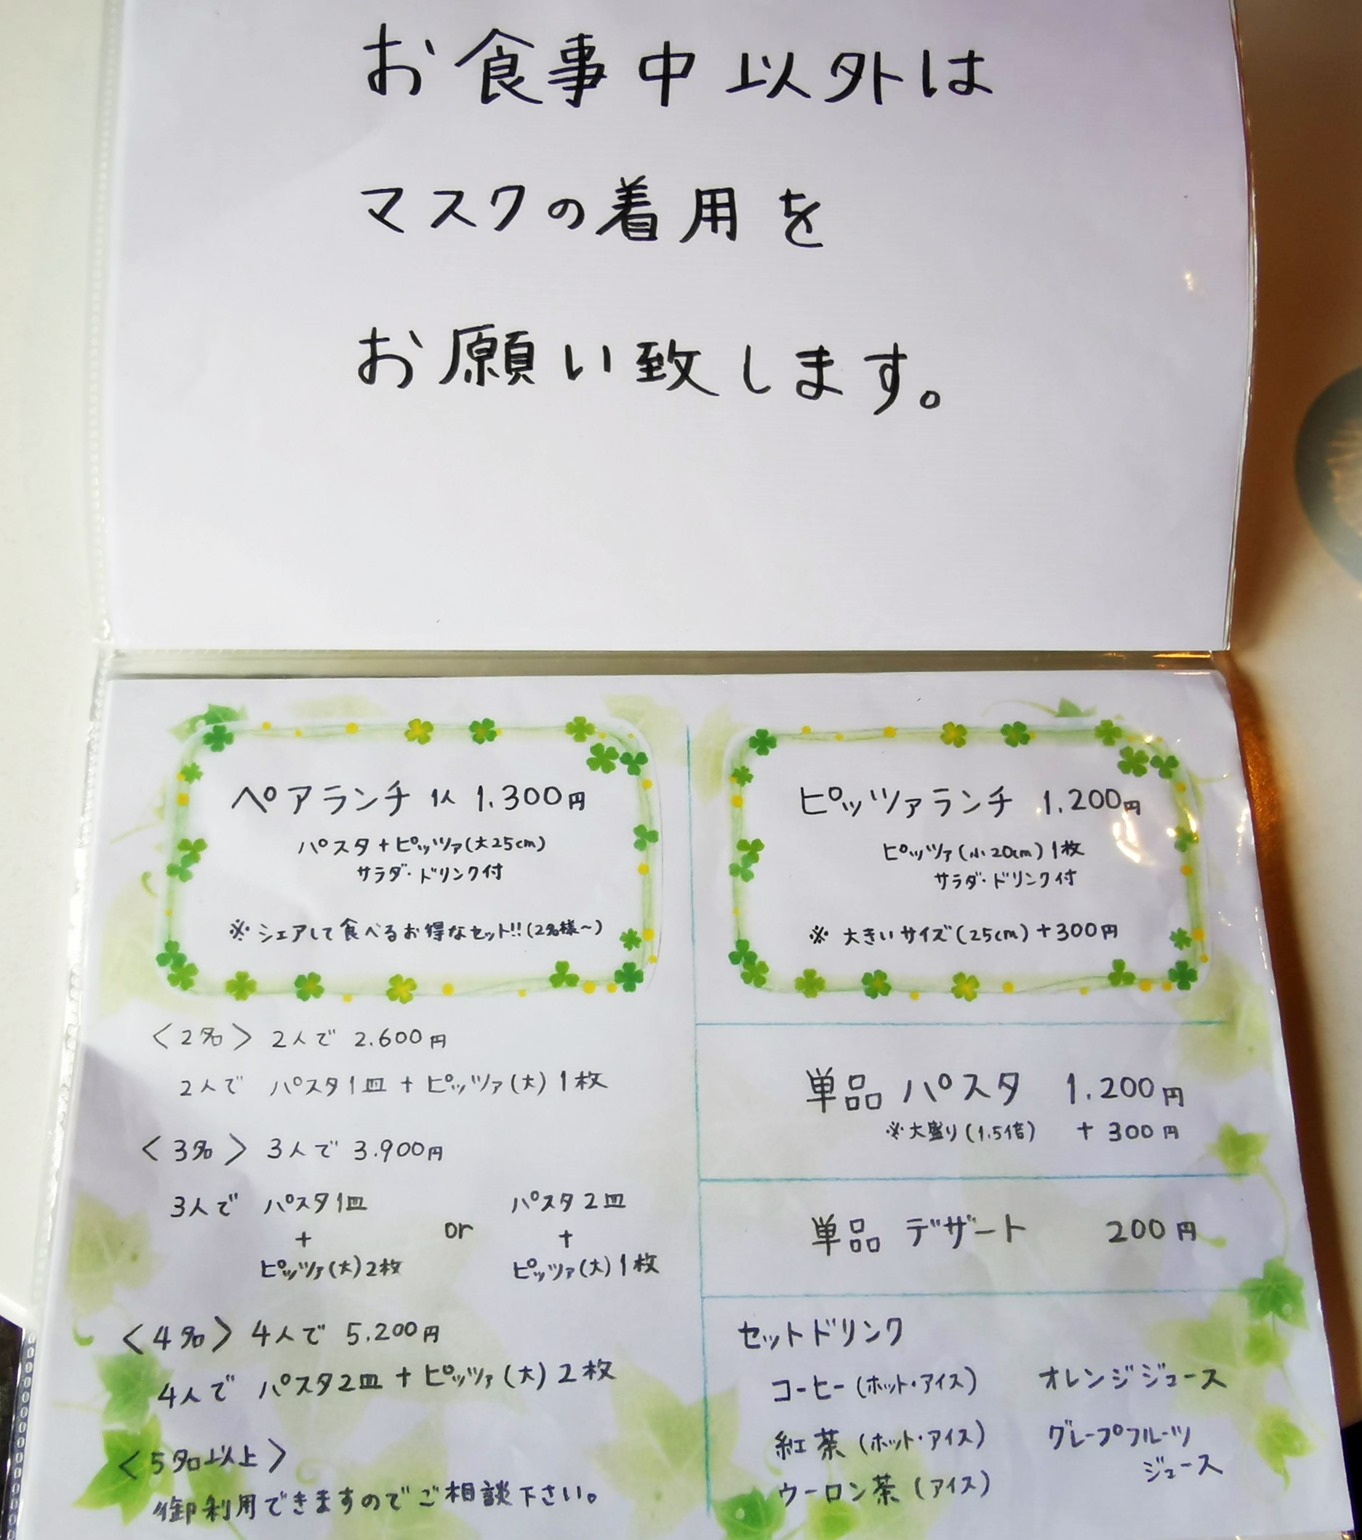 お食事中以外は
マスクの着用を
お願い致します。
ペアランチ 1人 1,300円
パスタ+ピッツァ(大25cm)
サラダ・ドリンク付
※シェアして食べるお得なセット!!(2名様〜)
<2名> 2人で 2.600円
2人で パスタ1皿+ピッツァ(大)1枚
<3名> 3人で 3.900円
3人で パスタ1皿 + ピッツァ(大)2枚 or パスタ2皿 + ピッツァ(大)1枚
<4名> 4人で 5.200円
4人で パスタ2皿+ピッツァ(大)2枚
<5名以上>
御利用できますのでご相談下さい。
ピッツァランチ 1.200円
ピッツァ(小20cm)1枚
サラダ・ドリンク付
※ 大きいサイズ(25cm)+300円
単品 パスタ 1.200円
※大盛り(1.5倍) +300円
単品 デザート 200円
セットドリンク
コーヒー(ホット・アイス) オレンジジュース
紅茶(ホット・アイス) グレープフルーツ
ジュース
ウーロン茶(アイス)